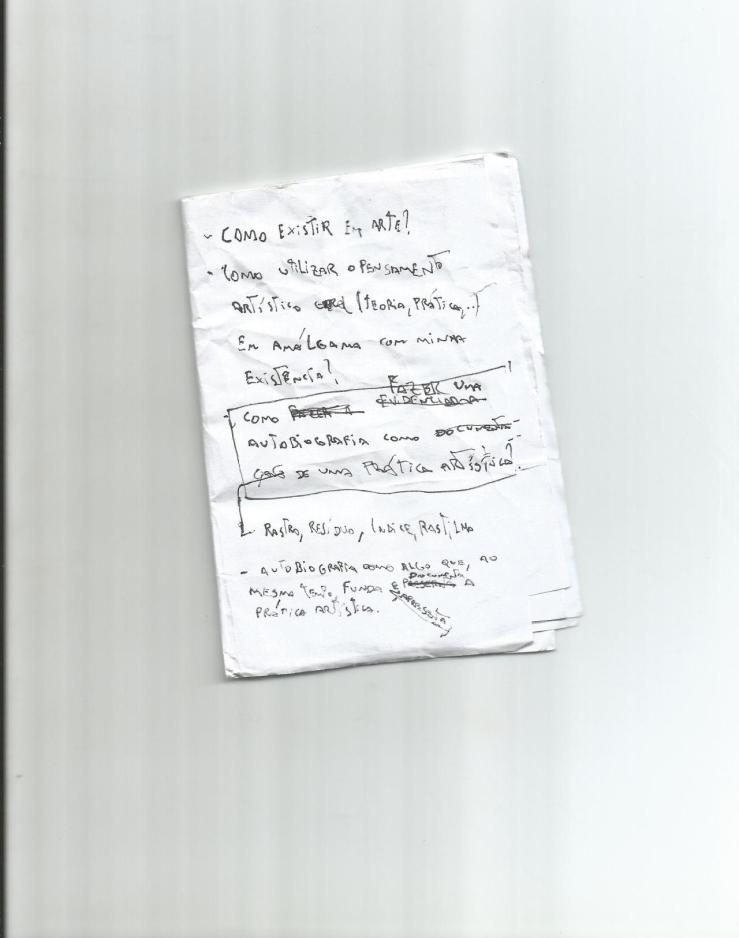 - COMO EXISTIR EM ARTE?
- COMO UTILIZAR O PENSAMENTO
ARTÍSTICO (TEORIA, PRÁTICA,...)
EM AMÁLGAMA COM MINHA
EXISTÊNCIA?
FAZER UMA
- COMO FAZER A EVIDENCIADORA
AUTOBIOGRAFIA COMO DOCUMENTA-
ÇÃO DE UMA PRÁTICA ARTÍSTICA?
RASTRO, RESÍDUO, ÍNDICE, RASTILHO
- AUTOBIOGRAFIA COMO ALGO QUE, AO
DOCUMENTA
MESMO TEMPO, FUNDA E A
APRESENTA
PRÁTICA ARTÍSTICA.